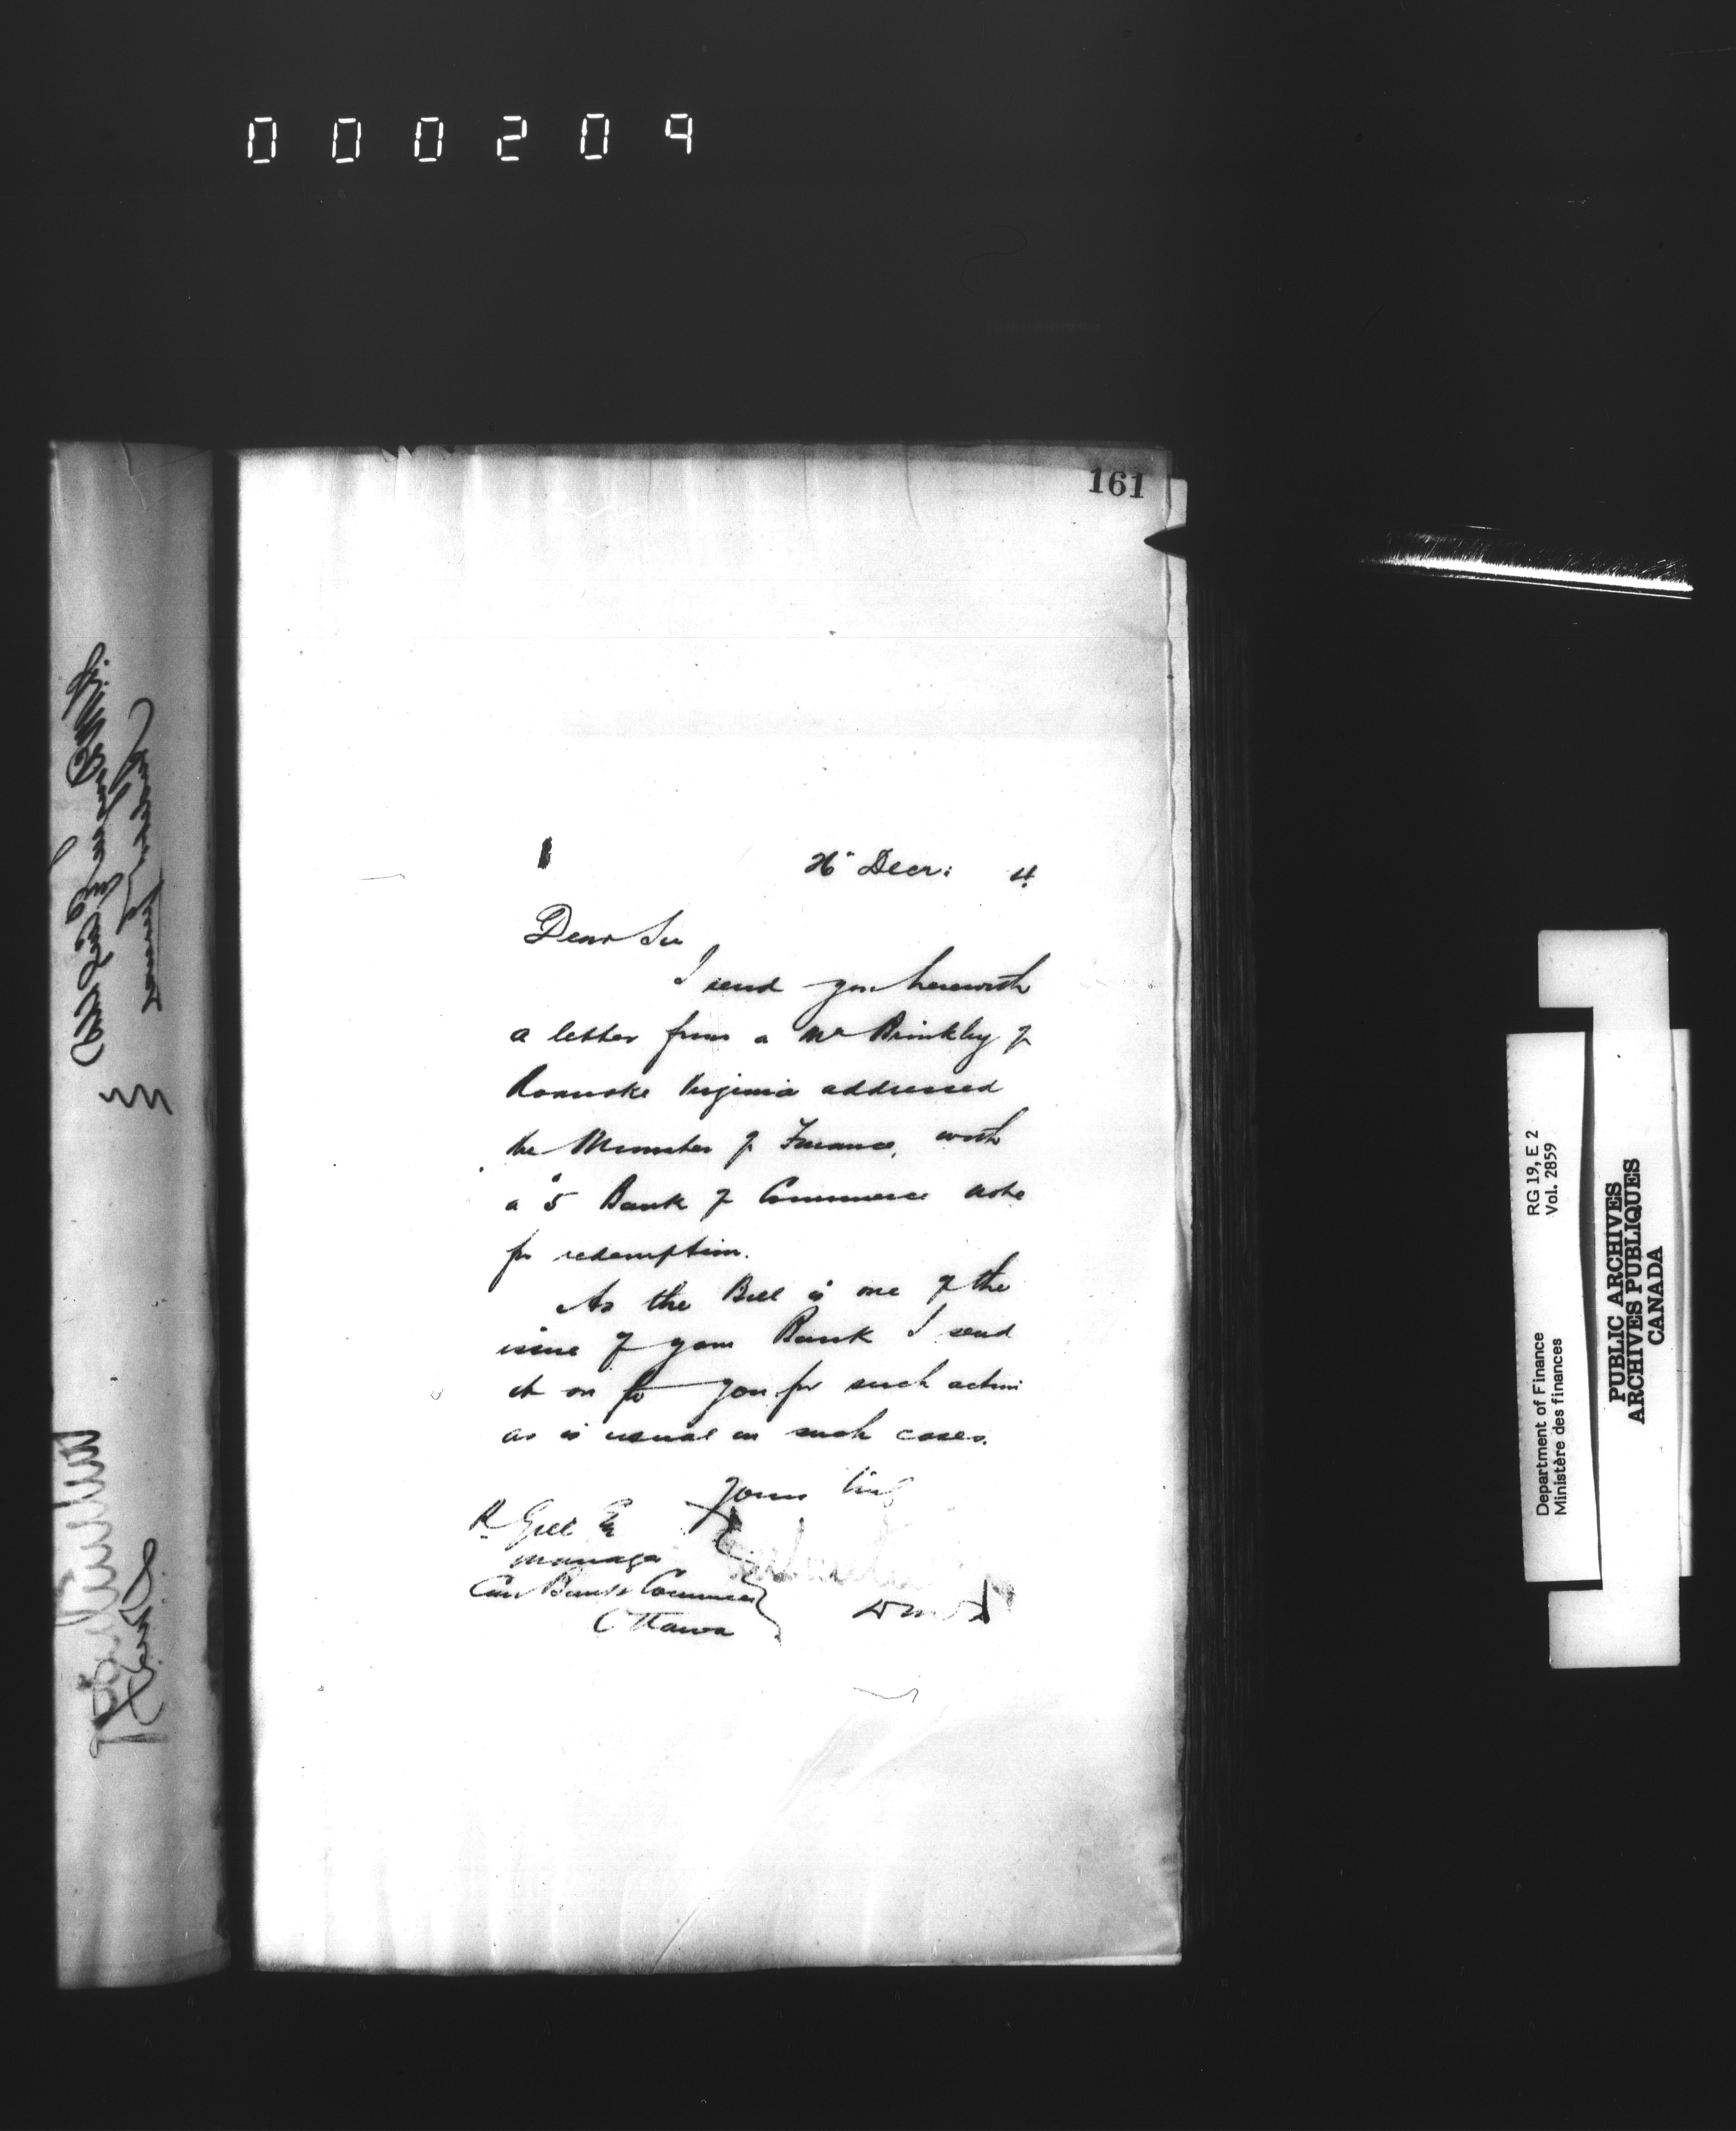 000209
161
26" Decr: 4
Dear Sir
I send you herewith
a letter from a Mr Brinkley of
Roanoke Virginia addressed
the Minister of Finance, with
a $5 Bank of Commerce note
for redemption.
As the Bill is one of the
issue of your Bank I send
it on to you for such action
as is usual in such cases.
Yours truly
R Gill Eq
Manager
Can Bank Commerce
Ottawa
DMF
Department of Finance
Ministère des finances
RG 19, E 2
Vol. 2859
PUBLIC ARCHIVES
ARCHIVES PUBLIQUES
CANADA